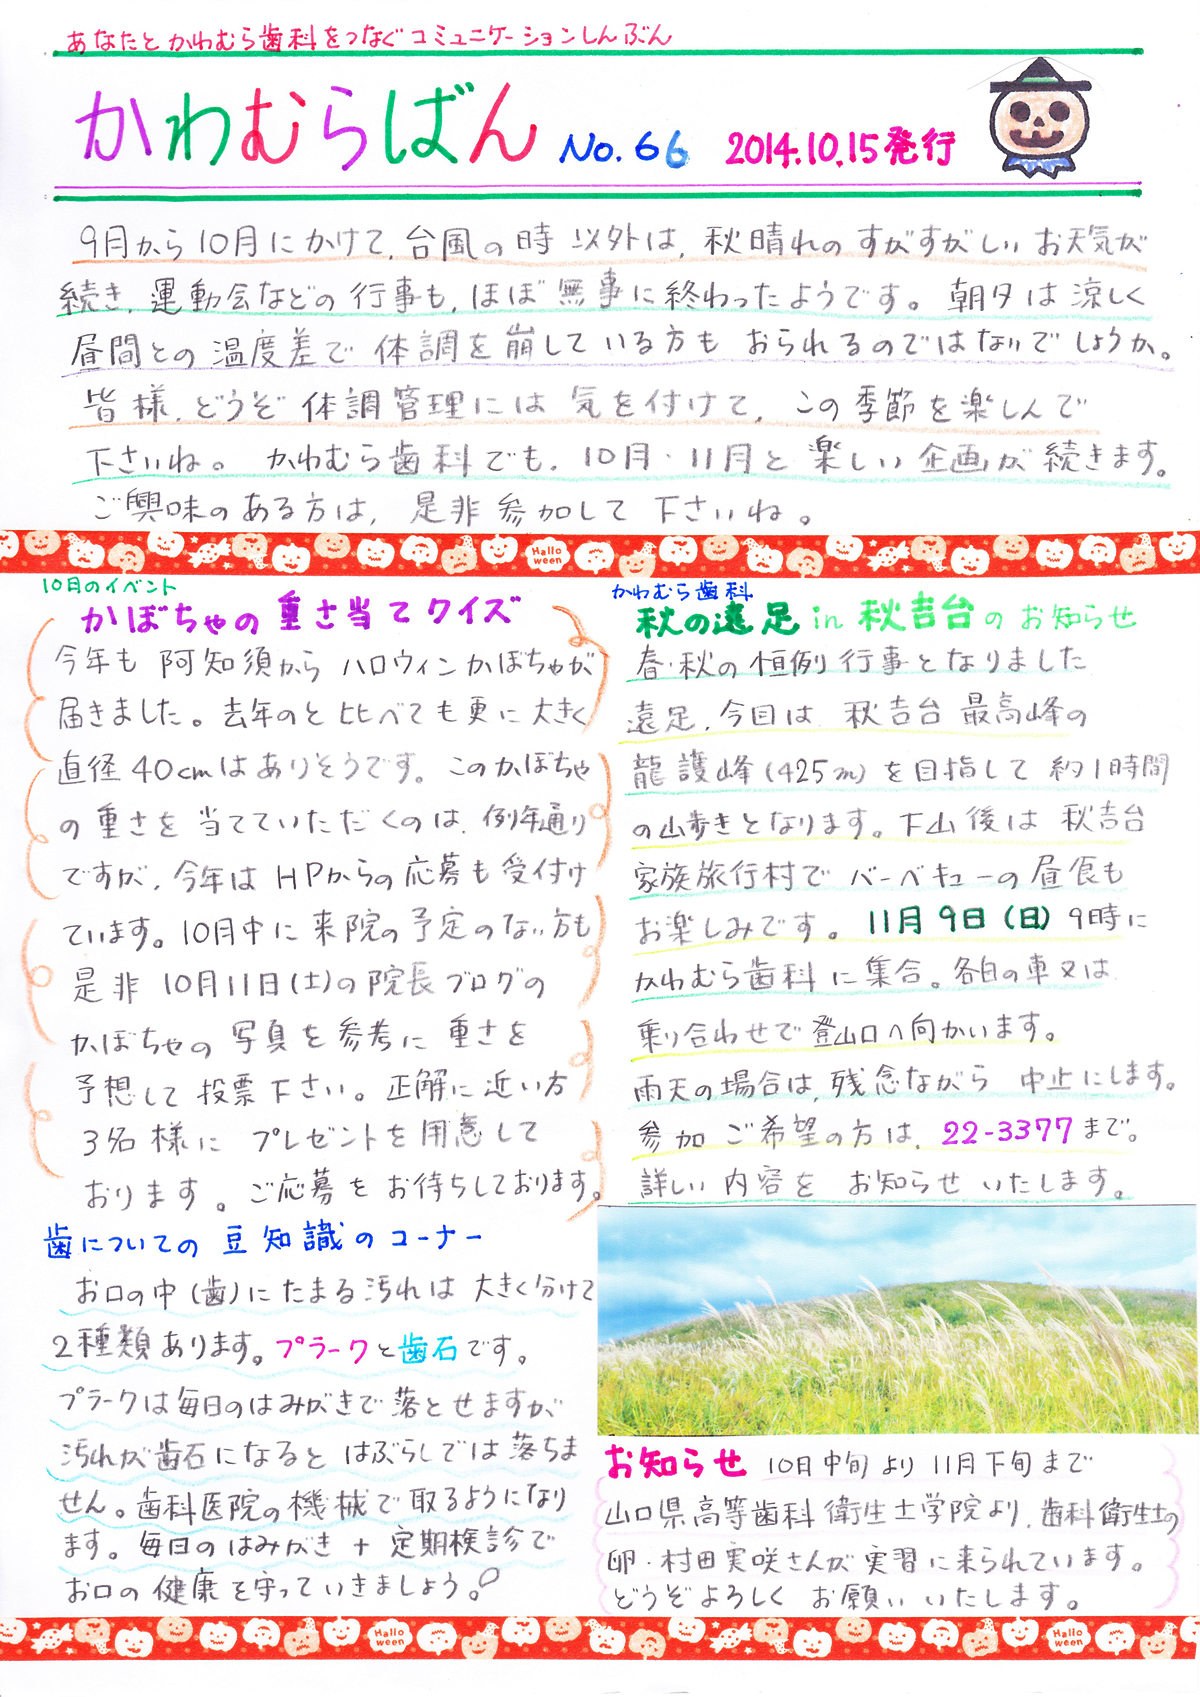 あなたとかわむら歯科をつなぐコミュニケーションしんぶん
かわむらばん No.66 2014.10.15発行
9月から10月にかけて、台風の時以外は、秋晴れのすがすがしいお天気が
続き、運動会などの行事も、ほぼ無事に終わったようです。朝夕は涼しく
昼間との温度差で体調を崩している方もおられるのではないでしょうか。
皆様、どうぞ体調管理には気を付けて、この季節を楽しんで
下さいね。かわむら歯科でも、10月・11月と楽しい企画が続きます。
ご興味のある方は、是非参加して下さいね。
Hallo
ween
10月のイベント
かぼちゃの重さ当てクイズ
今年も阿知須からハロウィンかぼちゃが
届きました。去年のと比べても更に大きく
直径40cmはありそうです。このかぼちゃ
の重さを当てていただくのは、例年通り
ですが、今年はHPからの応募も受付け
ています。10月中に来院の予定のない方も
是非10月11日(土)の院長ブログの
かぼちゃの写真を参考に重さを
予想して投票下さい。正解に近い方
3名様にプレゼントを用意して
おります。ご応募をお待ちしております。
歯についての豆知識のコーナー
お口の中(歯)にたまる汚れは大きく分けて
2種類あります。プラークと歯石です。
プラークは毎日のはみがきで落とせますが
汚れが歯石になるとはぶらしでは落ちま
せん。歯科医院の機械で取るようになり
ます。毎日のはみがき+定期検診で
お口の健康を守っていきましょう。
かわむら歯科
秋の遠足in秋吉台のお知らせ
春・秋の恒例行事となりました
遠足、今回は秋吉台最高峰の
龍護峰(425m)を目指して約1時間
の山歩きとなります。下山後は秋吉台
家族旅行村でバーベキューの昼食も
お楽しみです。11月9日(日)9時に
かわむら歯科に集合。各自の車又は
乗り合わせで登山口へ向かいます。
雨天の場合は、残念ながら中止にします。
参加ご希望の方は、22-3377まで。
詳しい内容をお知らせいたします。
お知らせ 10月中旬より11月下旬まで
山口県高等歯科衛生士学院より、歯科衛生士の
卵・村田実咲さんが実習に来られています。
どうぞよろしくお願いいたします。
Hallo
ween
Hallo
ween